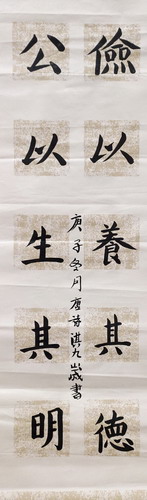 儉以養其德
公以生其明
庚子冬月唐詩淇九歲書